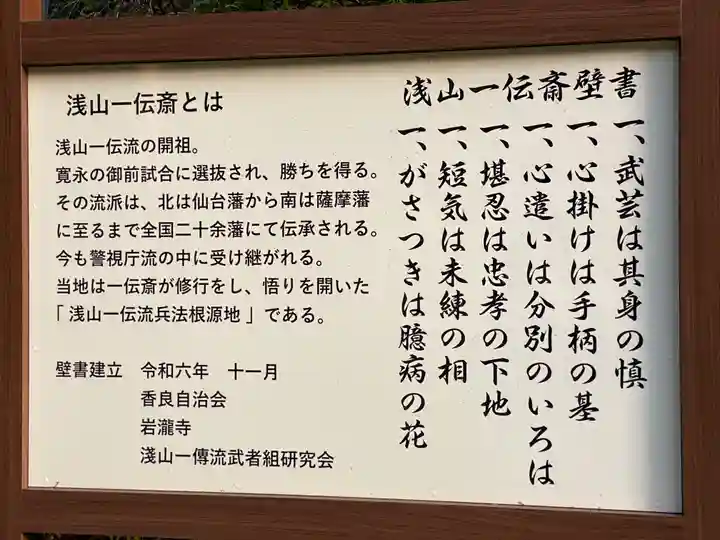 浅山一伝斎壁書
一、武芸は其身の慎
一、心掛けは手柄の基
一、心遣いは分別のいろは
一、堪忍は忠孝の下地
一、短気は未練の相
一、がさつきは臆病の花
浅山一伝斎とは
浅山一伝流の開祖。
寛永の御前試合に選抜され、勝ちを得る。
その流派は、北は仙台藩から南は薩摩藩
に至るまで全国二十余藩にて伝承される。
今も警視庁流の中に受け継がれる。
当地は一伝斎が修行をし、悟りを開いた
「浅山一伝流兵法根源地」である。
壁書建立 令和六年 十一月
香良自治会
岩瀧寺
淺山一傳流武者組研究会